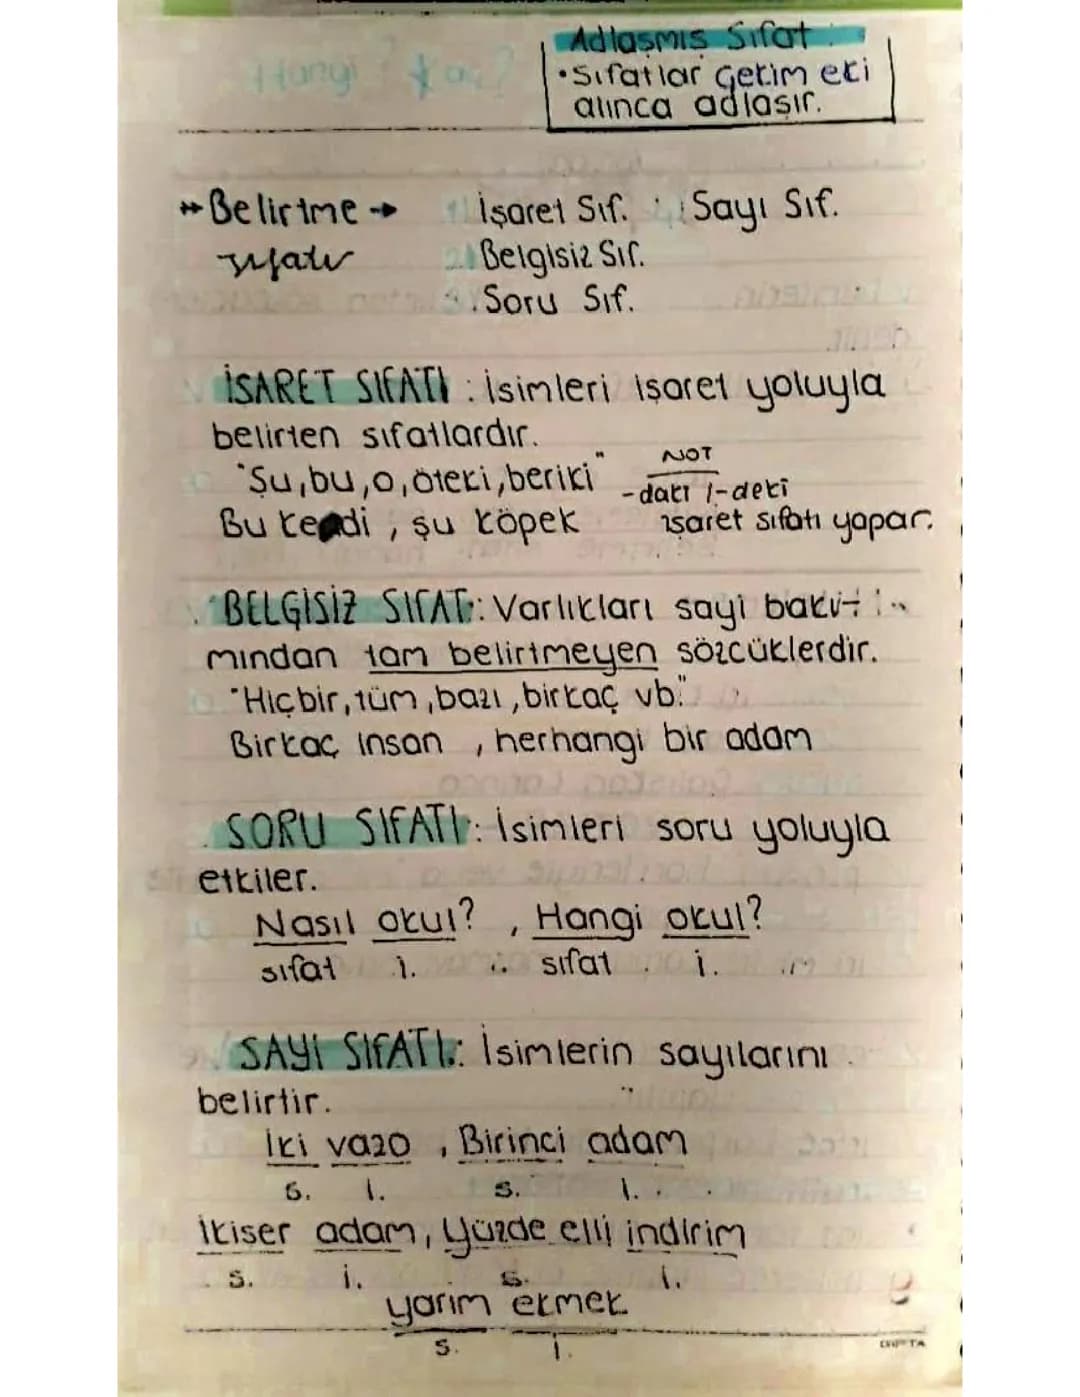 Adlaşmış Sıfat
•Sıfatlar Çekim eki
alınca adlaşır.
Hangi? Kaç?
Belirtme → İşaret Sıf. Sayı Sıf.
sıfatı 2) Belgisiz Sıf.
Soru Sıf.
İŞARET SIFATI : İsimleri işaret yoluyla
belirten sıfatlardır.
"Şu, bu, o, öteki, beriki" NOT
-daki /-deki
Bu kedi, şu köpek işaret sıfatı yapar.
BELGİSİZ SIFAT: Varlıkları sayi bakı-
mından tam belirtmeyen sözcüklerdir.
"Hiçbir, tüm, bazı, birkaç vb."
Birkaç insan, herhangi bir adam
SORU SIFATI: İsimleri soru yoluyla
etkiler.
Nasıl okul?, Hangi okul?
sıfat i. sıfat i.
SAYI SIFATI: İsimlerin sayılarını
belirtir.
İki vazo, Birinci adam
s. i. s. i.
İkişer adam, Yüzde elli indirim
s. i. s. i.
yarım ekmek
s. i.